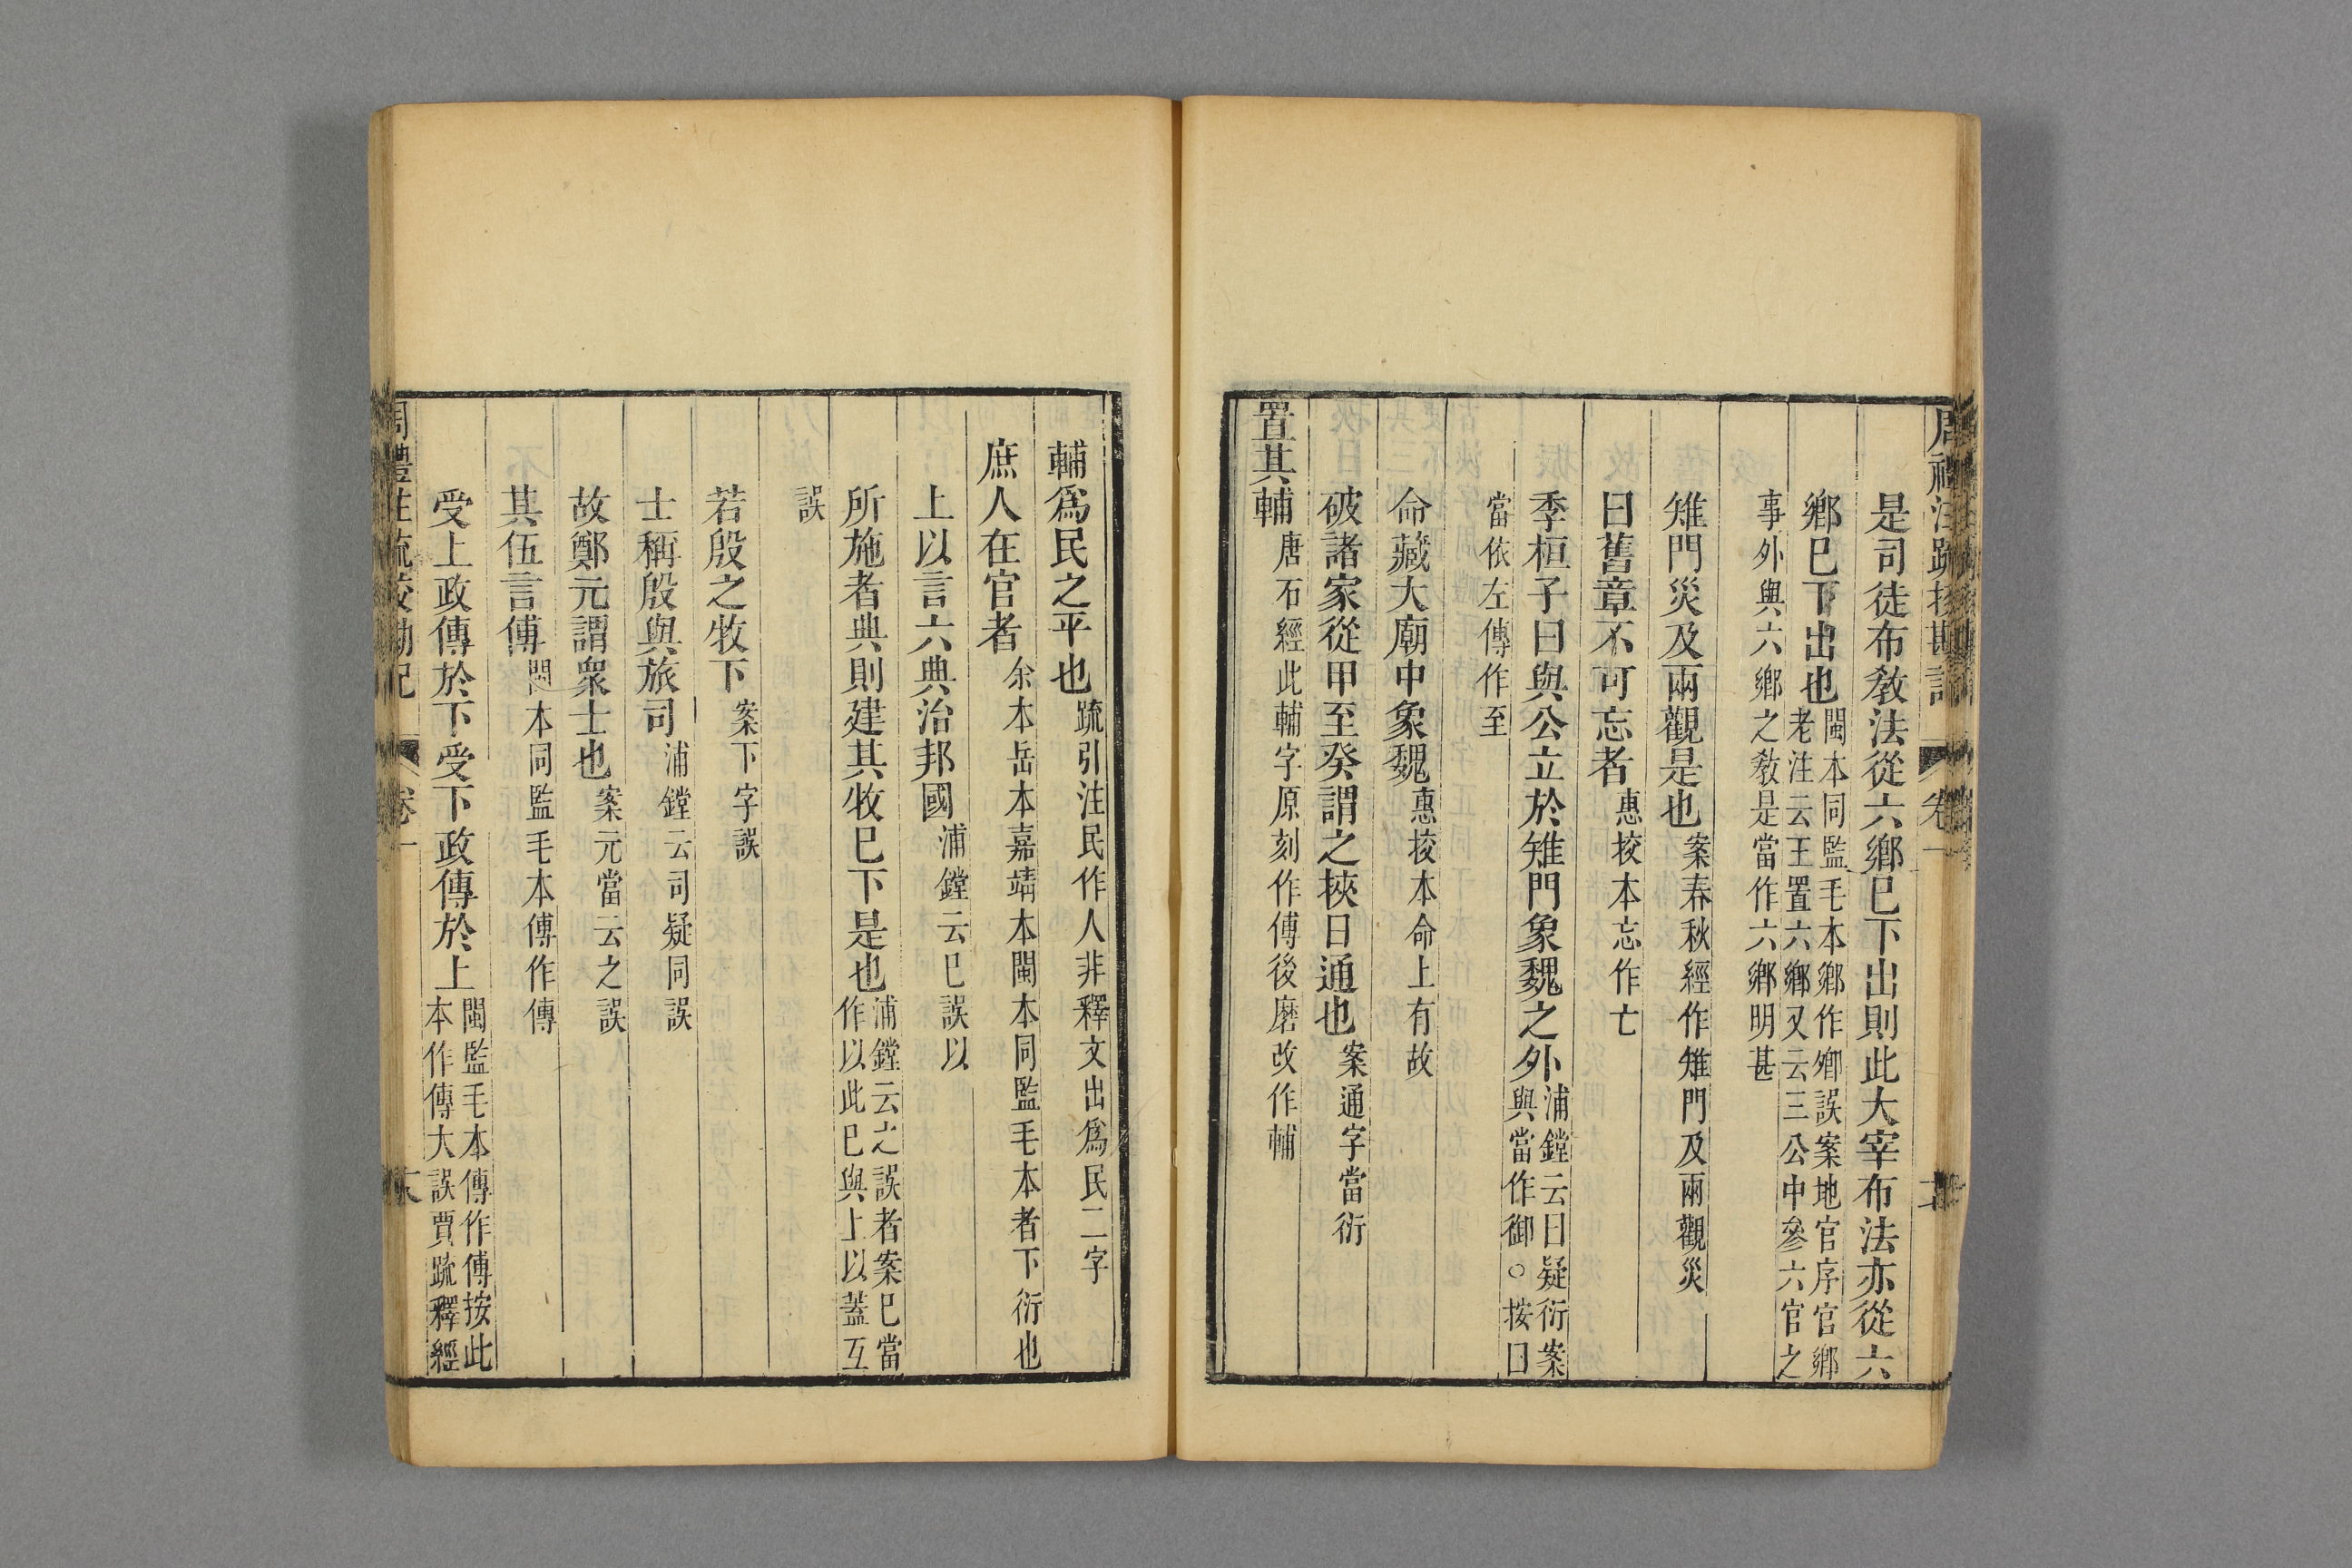 周禮注疏挍勘記 卷一
是司徒布敎法從六鄉巳下出則此大宰布法亦從六
鄉巳下出也閩本同監毛本鄉作卿誤案地官序官鄉老注云王置六鄉又云三公中參六官之
事外與六鄉之敎是當作六鄉明甚
雉門災及兩觀是也案春秋經作雉門及兩觀災
曰舊章不可忘者惠挍本忘作亡
季桓子曰與公立於雉門象魏之外浦鏜云曰疑衍案與當作御○按曰
當依左傳作至
命藏大廟中象魏惠挍本命上有故
破諸家從甲至癸謂之挾日通也案通字當衍
置其輔唐石經此輔字原刻作傅後磨改作輔
輔爲民之平也疏引注民作人非釋文出爲民二字
庶人在官者余本岳本嘉靖本閩本同監毛本者下衍也
上以言六典治邦國浦鏜云巳誤以
所施者典則建其牧巳下是也浦鏜云之誤者案巳當作以此巳與上以蓋互
誤
若殷之牧下案下字誤
士稱殷與旅司浦鏜云司疑同誤
故鄭元謂衆士也案元當云之誤
其伍言傅閩本同監毛本傅作傳
受上政傳於下受下政傳於上閩監毛本傳作傅按此本作傳大誤賈疏釋經
周禮注疏挍勘記 卷一